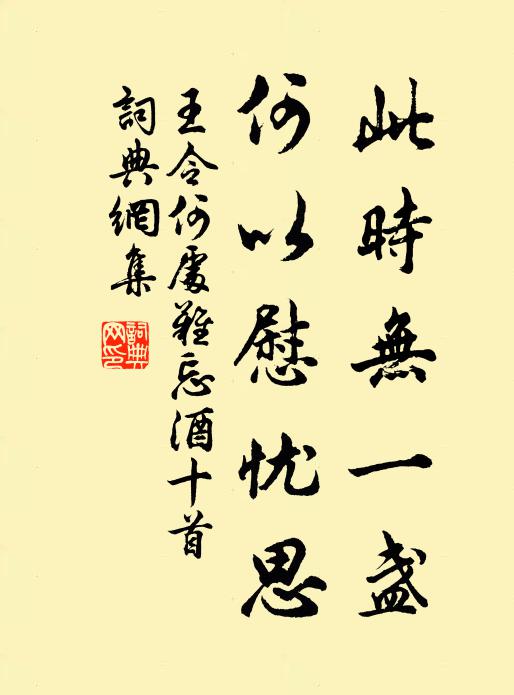 此時無一盏
何以慰忧思
王令何處難忘酒十首
詞典網集
詞典网印